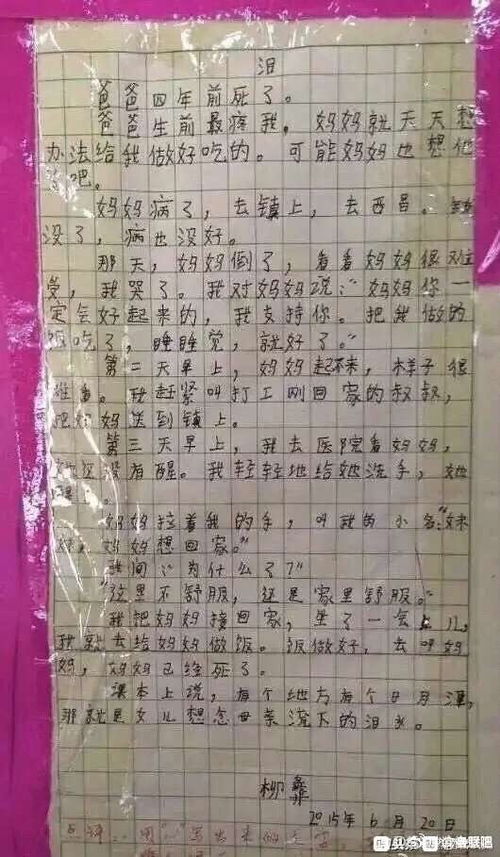 泪
爸爸四年前死了。
爸爸生前最疼我,妈妈就天天想
办法给我做好吃的。可能妈妈也想他
了吧。
妈妈病了,去镇上,去西昌。钱
没了,病也没好。
那天,妈妈倒了,看看妈妈很难
受,我哭了。我对妈妈说:“妈妈你一
定会好起来的,我支持你。把我做的
饭吃了,睡睡觉,就好了。”
第二天早上,妈妈起不来,样子很
难看。我赶紧叫打工刚回家的叔叔,
把妈妈送到镇上。
第三天早上,我去医院看妈妈,
她还没有醒。我轻轻地给她洗手,她
醒了。
妈妈拉着我的手,叫我的小名:“妹
妹,妈妈想回家。”
我问:“为什么了?”
“这里不舒服,还是家里舒服。”
我把妈妈接回家,坐了一会儿,
我就去给妈妈做饭。饭做好,去叫妈
妈,妈妈已经死了。
课本上说,有个地方有个日月潭,
那就是女儿想念母亲流下的泪水。
柳彝
2015年6月20日
点评:用“